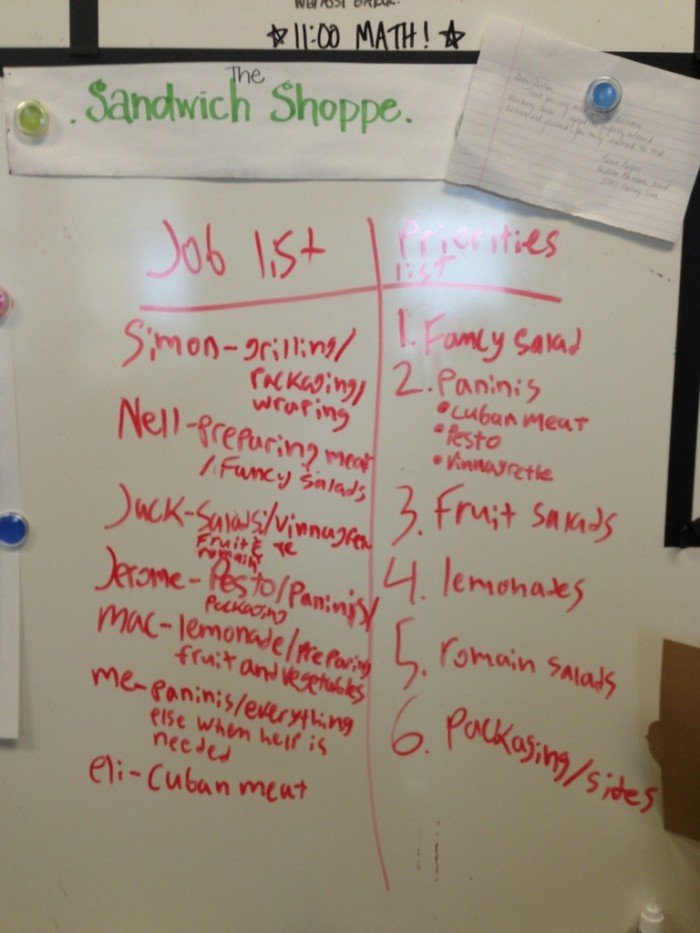 ☆ 11:00 MATH! ☆
The
Sandwich Shoppe.
Job list
Simon-grilling/
Packaging/
wraping
Nell-preparing meat
/Fancy salads
Jack-Salads/vinnagre
Fruit & te
romain
Jerome-Pesto/Paninis/
packaging
mac-lemonade/preparing
fruit and vegetables
me-paninis/everything
else when help is
needed
eli-Cuban meat
Priorities
list
1. Fancy salad
2. Paninis
• Cuban meat
• Pesto
• Vinnagrette
3. Fruit salads
4. lemonades
5. romain salads
6. packaging/sides